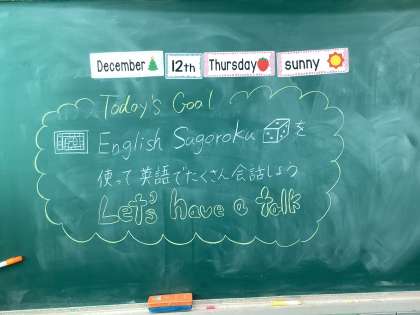 December 12th Thursday sunny
Today's Goal
English Sugoroku を
使って英語でたくさん会話しよう
Let's have a talk